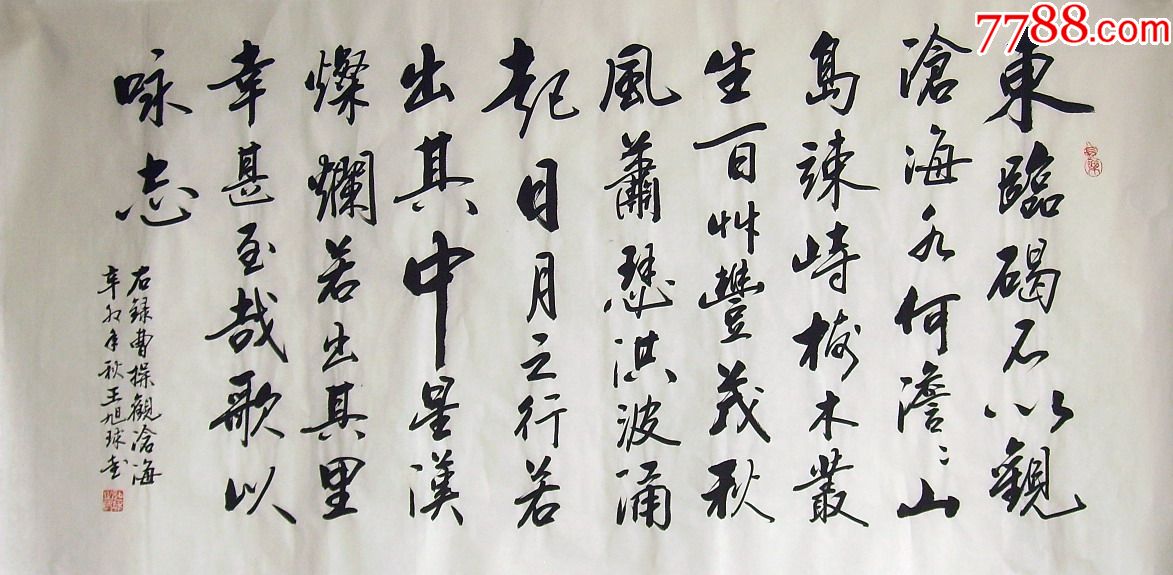 7788.com
東臨碣石以觀
滄海水何澹〻山
島竦峙樹木叢
生百艸豐茂秋
風蕭瑟洪波涌
起日月之行若
出其中星漢
燦爛若出其里
幸甚至哉歌以
咏志
右録曹操觀滄海
辛卯年秋王旭球書